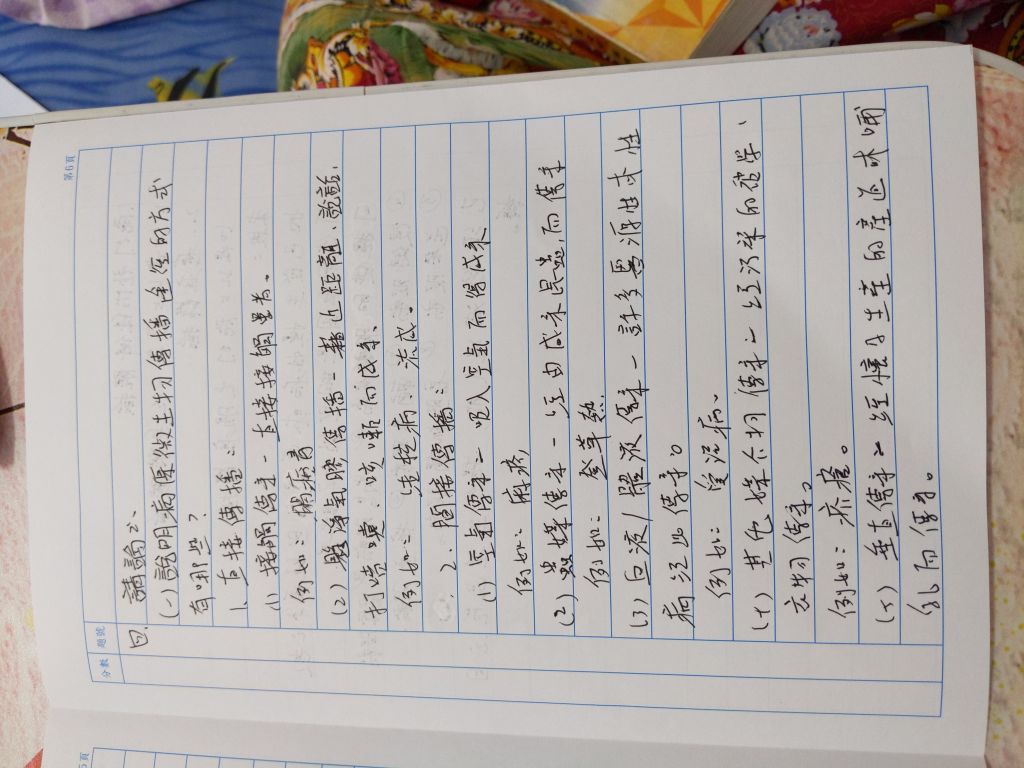 第6頁
分數 題號
四、請論云、
(一) 說明病原微生物傳播途徑的方式
有哪些？
1. 直接傳播：
(1) 接觸傳染－直接接觸患者。
例如：性病毒
(2) 飛沫氣膠傳播－藉近距離、說話、
打噴嚏、咳嗽而感染、
例如：流感。
2. 間接傳播：
(1) 空氣傳染－吸入空氣而得感染
例如：麻疹,
(2) 蟲媒傳染－經由感染昆蟲,而傳染
例如：登革熱.
(3) 血液/體液傳染－許多濾源性或性
病經此傳染。
例如：愛滋病.
(4) 其他媒介物傳染－經污染的被單、
衣物傳染。
例如：疥瘡。
(5) 垂直傳染－經懷孕生產的產道或哺
乳而傳染。